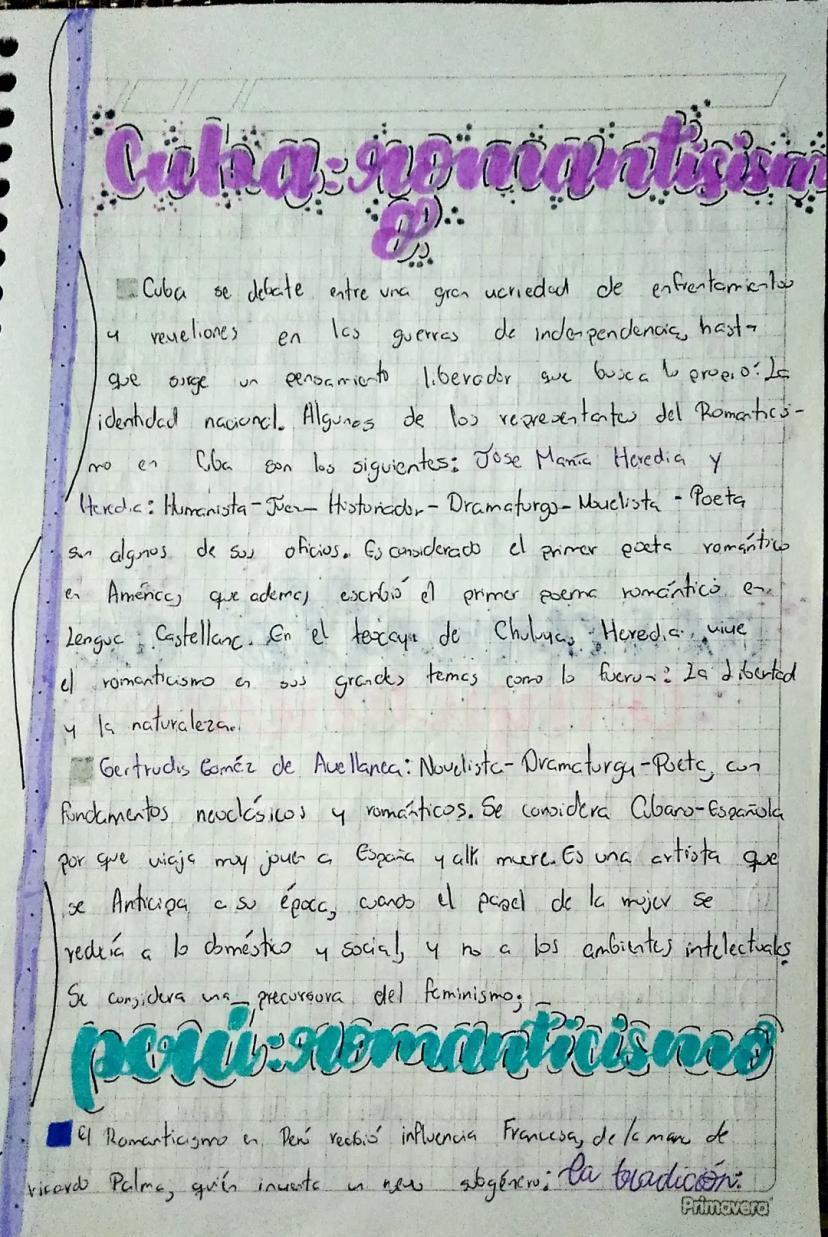 Cuba: romantisism
o
Cuba se debate entre una gran variedad de enfrentamientos
y reveliones en las guerras de independencia, hasta
que surge un pensamiento liberador que busca lo propio: La
identidad nacional. Algunos de los representantes del Romanticis-
mo en Cba son los siguientes: Jose María Heredia y
Heredia: Humanista-Juez- Historiador- Dramaturgo- Novelista - Poeta
son algnos de sus oficios. Es considerado el primer poeta romántico
en América, que ademas escribió el primer poema romántico en
Lengua Castellana. En el teocayi de Chulua, Heredia vive
el romanticismo en sus grandes temas como lo fueron: La libertad
y la naturaleza.
Gertrudis Goméz de Avellanea: Novelista- Dramaturga-Poeta, con
fundamentos neoclásicos y románticos. Se considera Cubano-Española
por que viaja muy joven a España y alli muere. Es una artista que
se Anticipa a su época, cuando el papel de la mujer se
reducía a lo doméstico y social, y no a los ambientes intelectuales.
Se considera una precursora del feminismo;
perú: romanticismo
El Romanticismo en Perú recibió influencia Francesa, de la mano de
ricardo Palma, quién inventa un new subgénero: la tradición:
Primavera